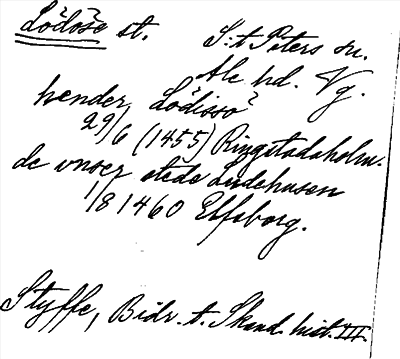 Lödöse st. S:t Peters sn.
Ale hd. Vg.
hender, Lödisso?
29/6 (1455) Ringstadaholm.
de vnser stede Ludehusen
1/8 1460 Elfsborg.
Styffe, Bidr. t. Skand. hist. III.